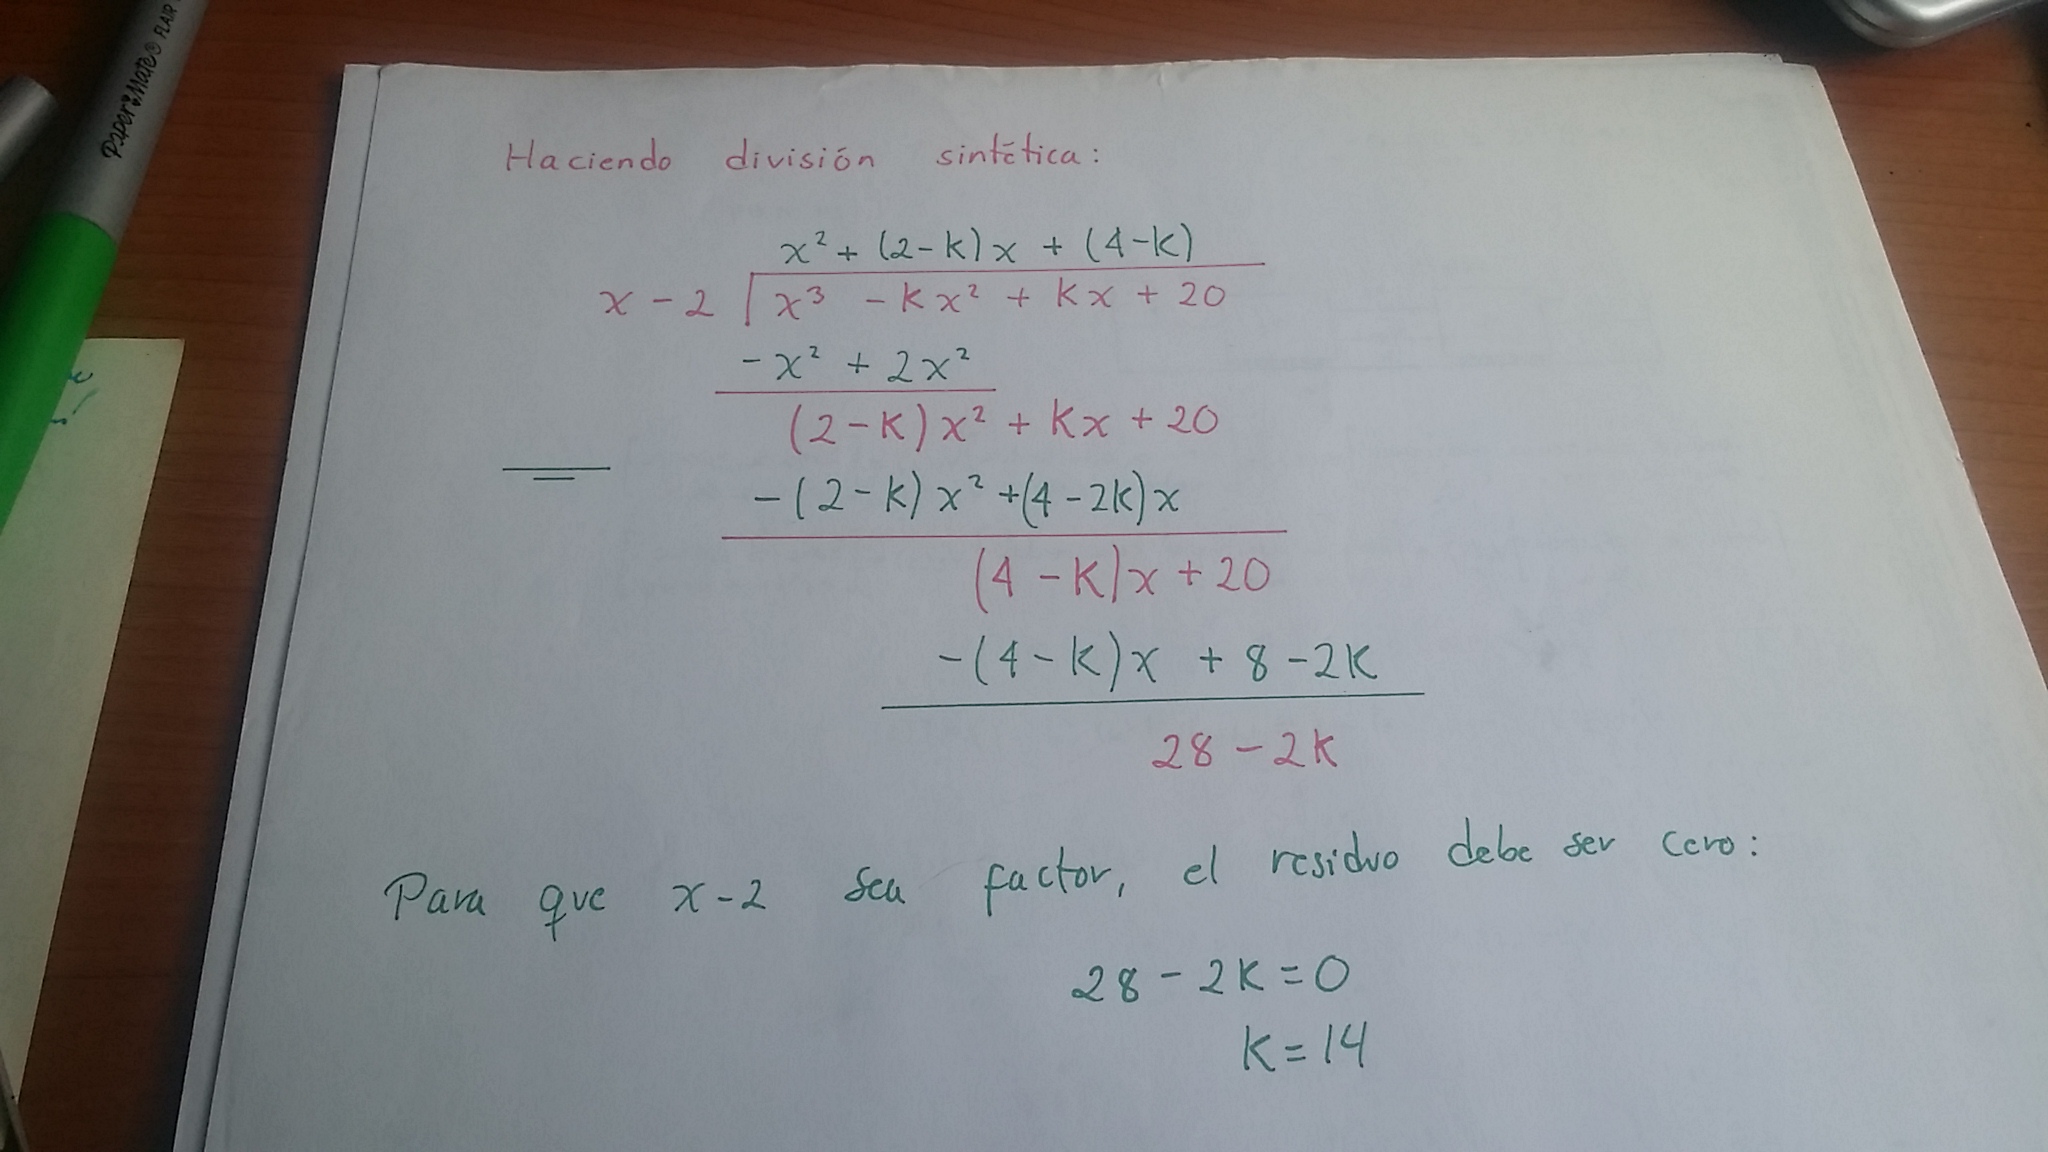 Paper:Mate® FLAIR
Haciendo división sintética:
x² + (2-k)x + (4-k)
x - 2 | x³ - kx² + kx + 20
-x² + 2x²
(2-k)x² + kx + 20
-(2-k)x² +(4-2k)x
(4-k)x + 20
-(4-k)x + 8-2k
28-2k
Para que x-2 sea factor, el residuo debe ser cero:
28-2k=0
k=14